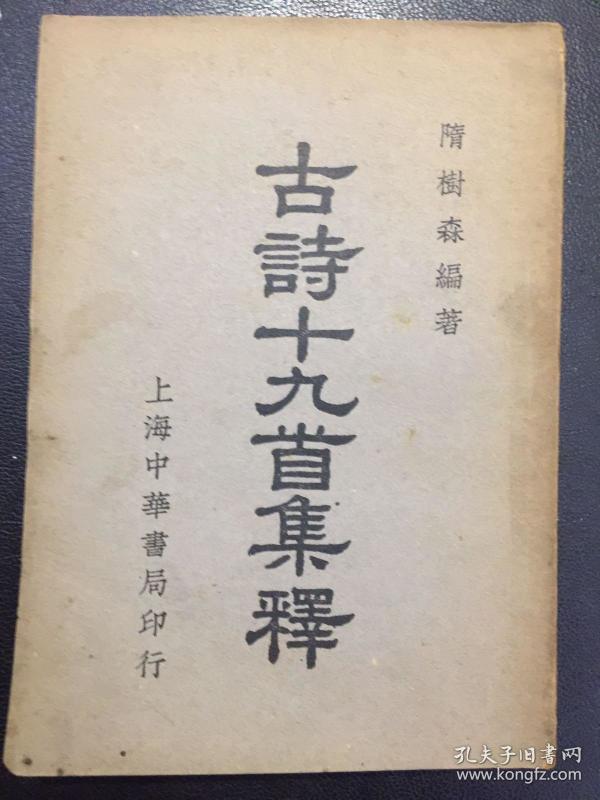 隋樹森編著
古詩十九首集釋
上海中華書局印行
孔夫子旧书网
www.kongfz.com